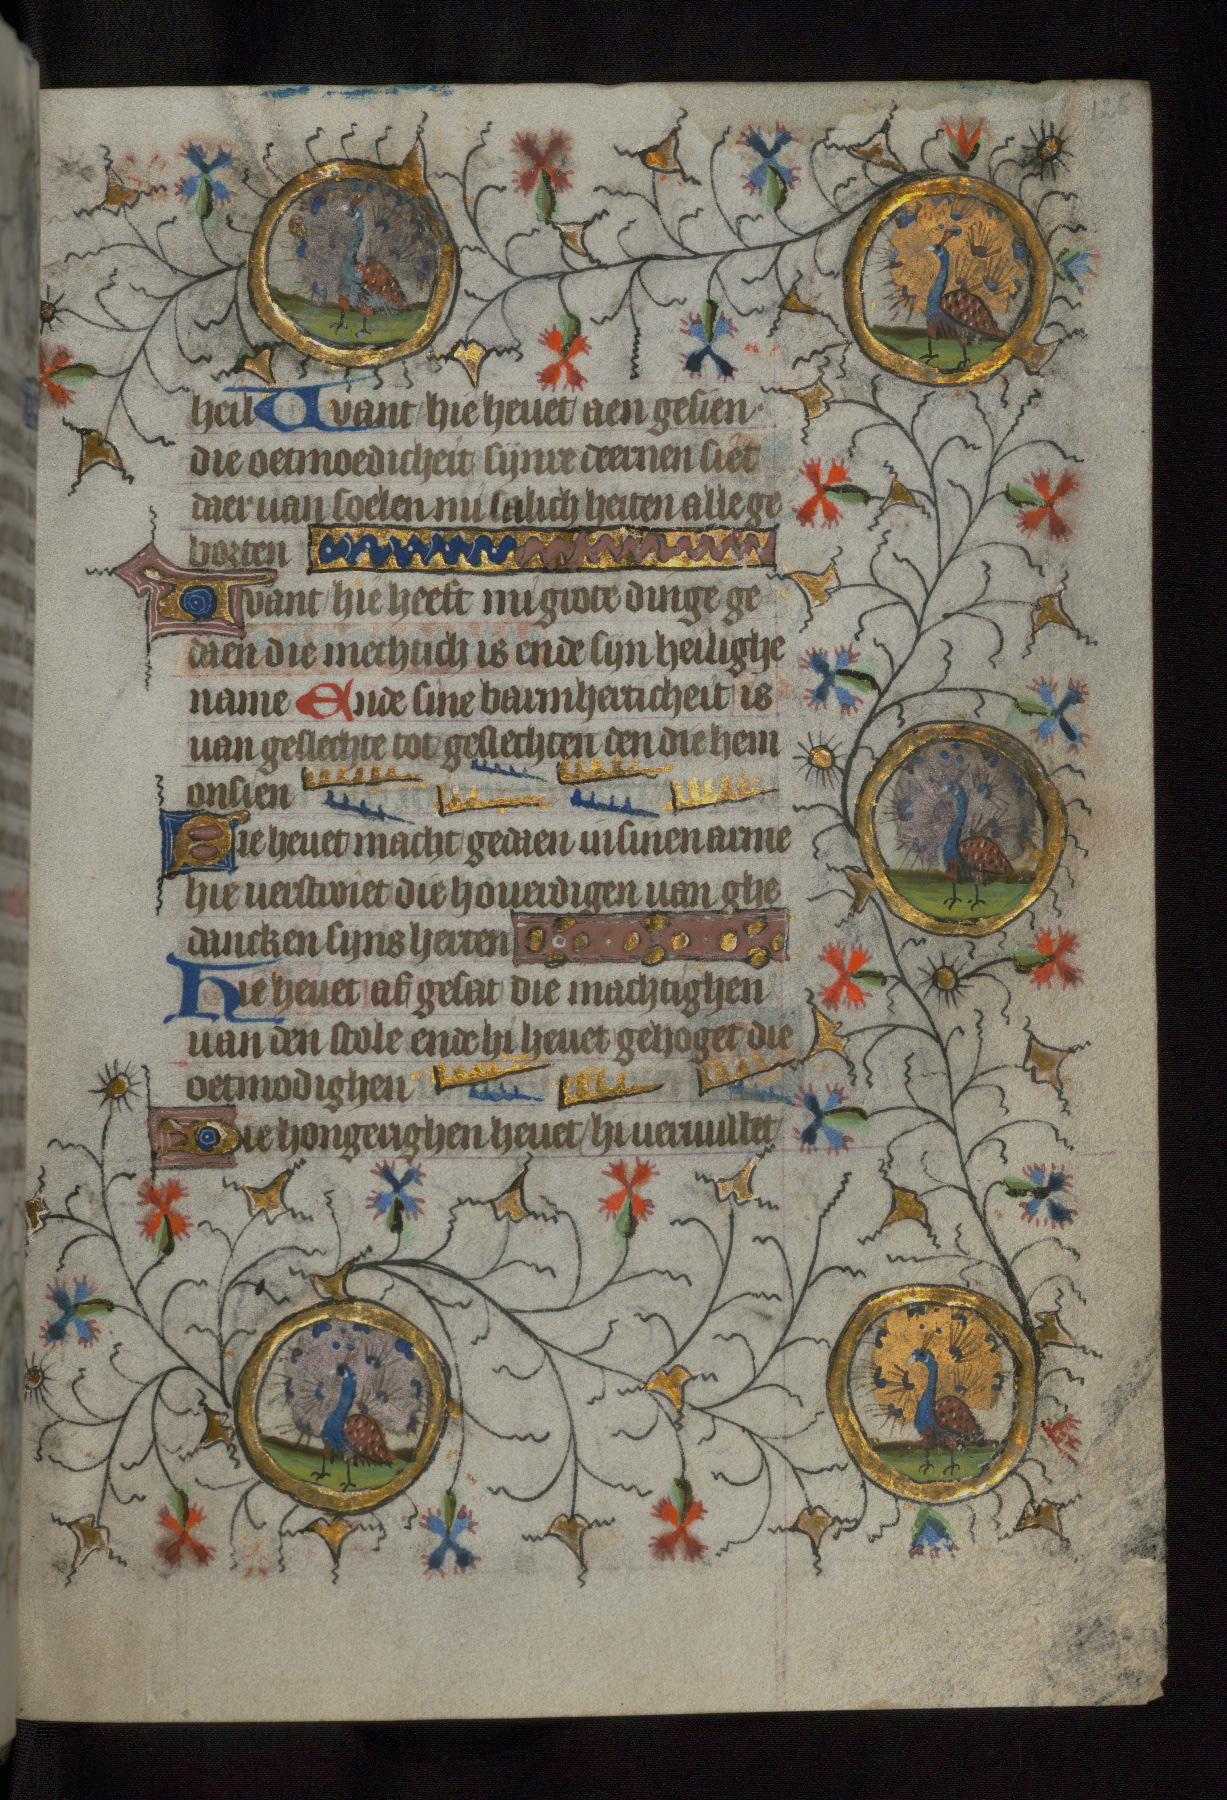 125
heil Want hie heuet aen gesien
die oetmoedicheit sijnre deernen siet
daer uan soelen mi salich heiten alle ge
borten
Want hie heeft mi grote dinge ge
daen die mechtich is ende sijn heilighe
name Ende sine barmherticheit is
uan geslechte tot geslechten den die hem
onsien
Hie heuet macht gedaen in sinen arme
hie uerstroiet die houerdigen uan ghe
dancken sijns herten
Hie heuet af gesat die machtighen
uan den stole ende hi heuet gehoget die
oetmodighen
Die hongerighen heuet hi ueruullet